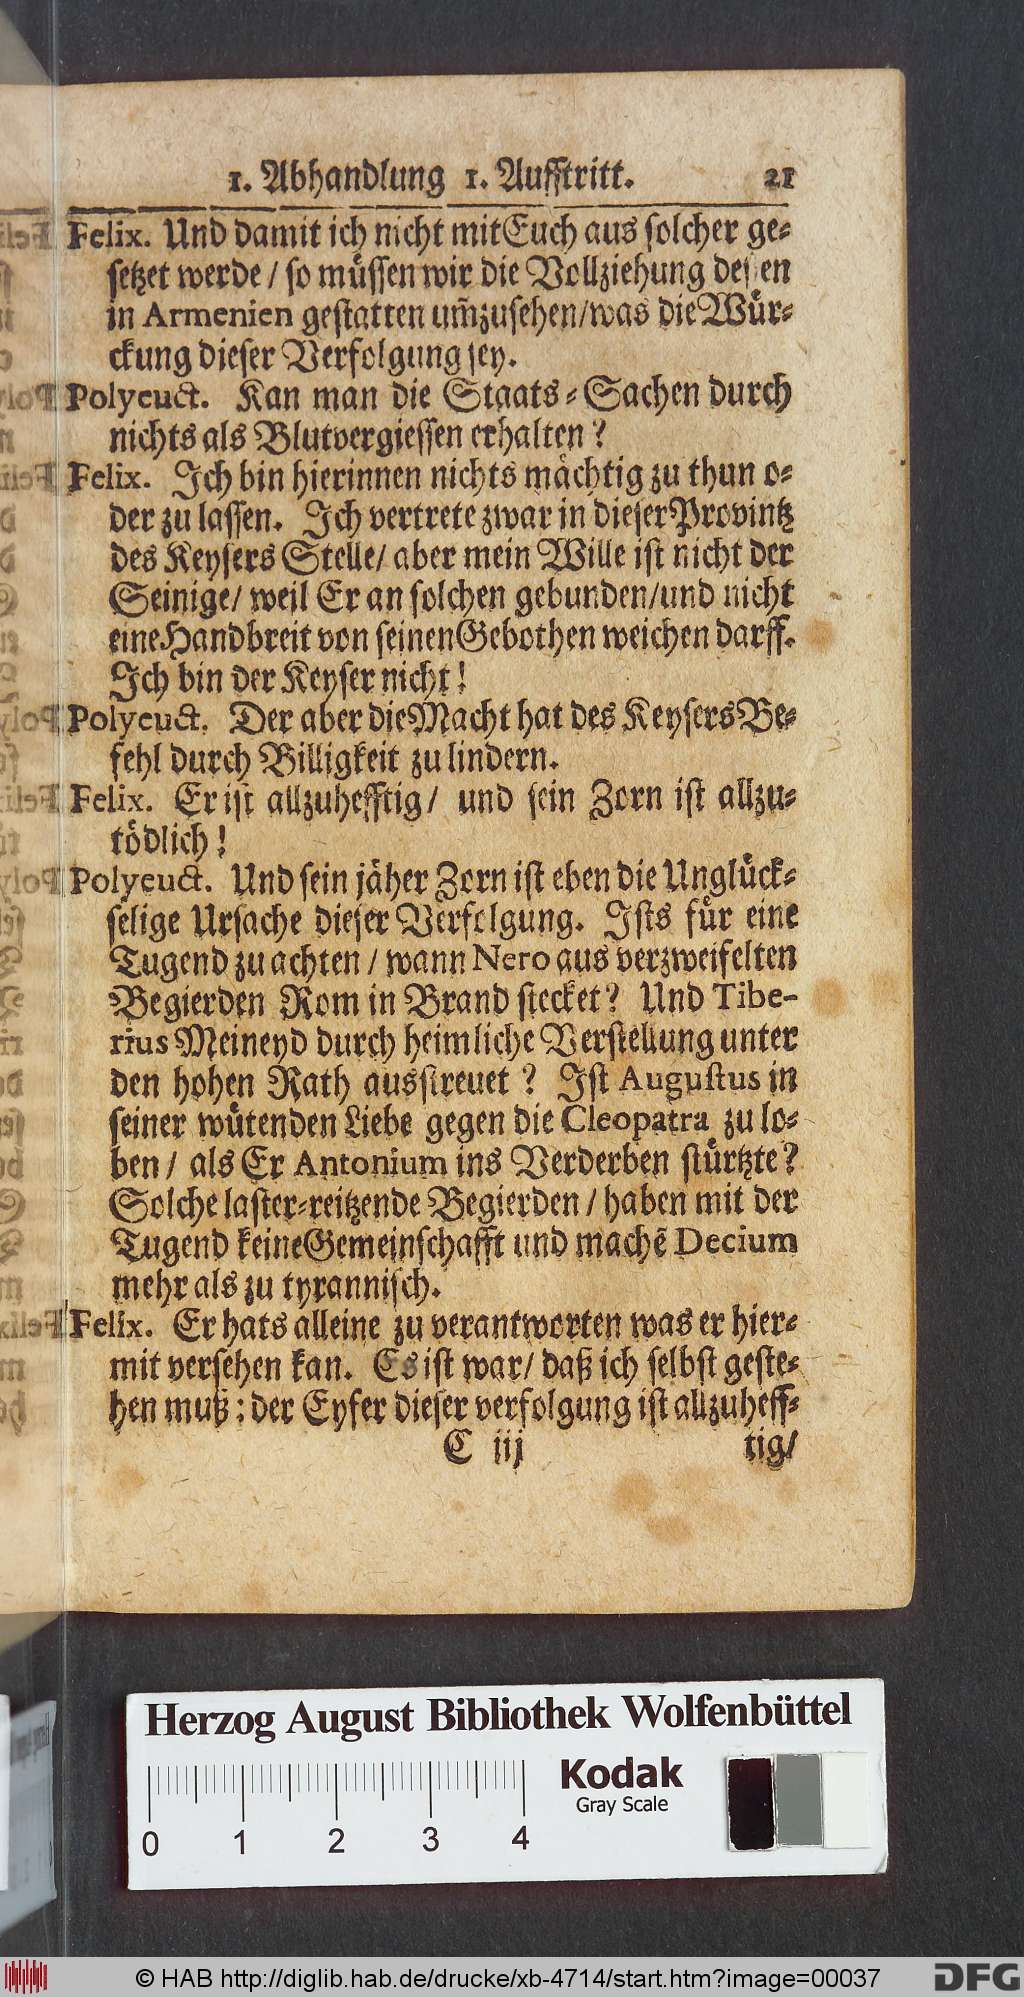 1. Abhandlung 1. Aufftritt. 21
Felix. Und damit ich nicht mit Euch aus solcher ge-
setzet werde / so müssen wir die Vollziehung dessen
in Armenien gestatten um̃zusehen/was die Wür-
ckung dieser Verfolgung sey.
Polyeuct. Kan man die Staats-Sachen durch
nichts als Blutvergiessen erhalten?
Felix. Ich bin hierinnen nichts mächtig zu thun o-
der zu lassen. Ich vertrete zwar in dieser Provintz
des Keysers Stelle/ aber mein Wille ist nicht der
Seinige/ weil Er an solchen gebunden/und nicht
eine Handbreit von seinen Gebothen weichen darff.
Ich bin der Keyser nicht!
Polyeuct. Der aber die Macht hat des Keysers Be-
fehl durch Billigkeit zu lindern.
Felix. Er ist allzuhefftig/ und sein Zorn ist allzu-
tödlich!
Polyeuct. Und sein jäher Zorn ist eben die Unglück-
selige Ursache dieser Verfolgung. Ists für eine
Tugend zu achten / wann Nero aus verzweifelten
Begierden Rom in Brand stecket? Und Tibe-
rius Meineyd durch heimliche Verstellung unter
den hohen Rath ausstreuet? Ist Augustus in
seiner wütenden Liebe gegen die Cleopatra zu lo-
ben / als Er Antonium ins Verderben stürtzte?
Solche laster-reitzende Begierden / haben mit der
Tugend keine Gemeinschafft und machẽ Decium
mehr als zu tyrannisch.
Felix. Er hats alleine zu verantworten was er hier-
mit versehen kan. Es ist war/ daß ich selbst geste-
hen muß: der Eyfer dieser verfolgung ist allzuheff-
C iij tig/
Herzog August Bibliothek Wolfenbüttel
Kodak
Gray Scale
0 1 2 3 4
© HAB http://diglib.hab.de/drucke/xb-4714/start.htm?image=00037
DFG